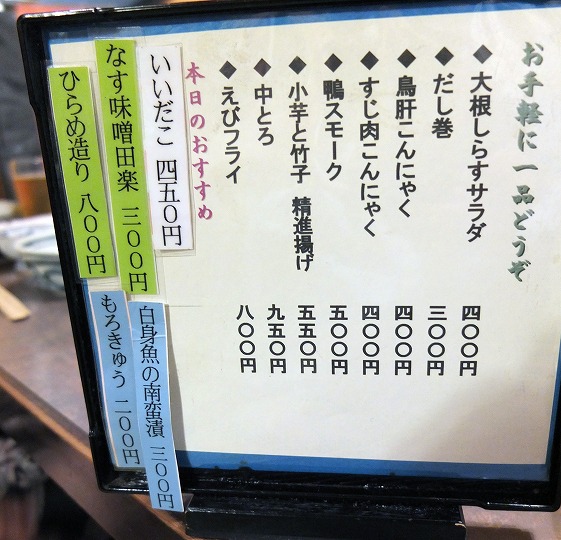 お手軽に一品どうぞ
◆大根しらすサラダ 四〇〇円
◆だし巻 三〇〇円
◆鳥肝こんにゃく 四〇〇円
◆すじ肉こんにゃく 四〇〇円
◆鴨スモーク 五〇〇円
◆小芋と竹子 精進揚げ 五五〇円
◆中とろ 九五〇円
◆えびフライ 八〇〇円
本日のおすすめ
いいだこ 四五〇円
なす味噌田楽 三〇〇円
ひらめ造り 八〇〇円
白身魚の南蛮漬 三〇〇円
もろきゅう 二〇〇円